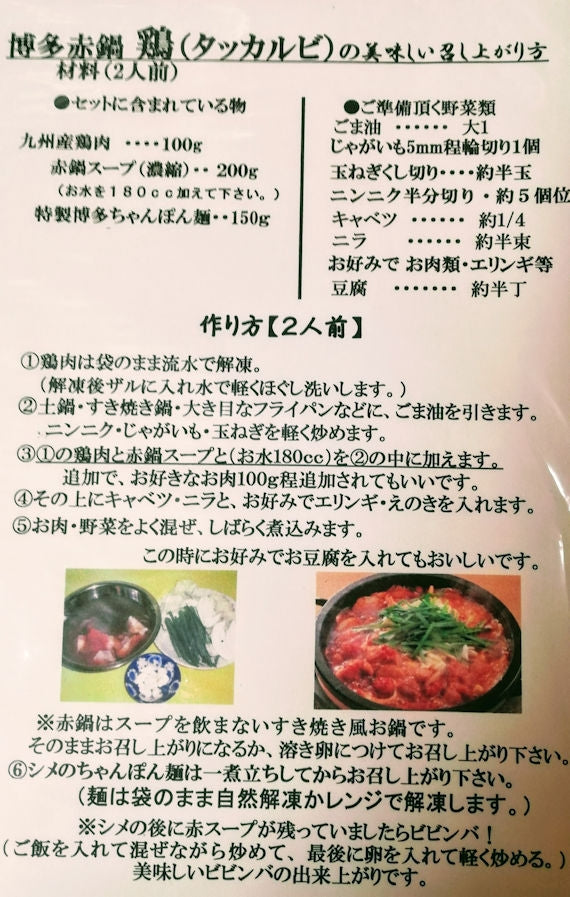 博多赤鍋 鶏(タッカルビ)の美味しい召し上がり方
材料(2人前)
●セットに含まれている物
九州産鶏肉 ････100g
赤鍋スープ(濃縮)‥200g
(お水を180cc加えて下さい。)
特製博多ちゃんぽん麺‥150g
●ご準備頂く野菜類
ごま油 ‥‥‥ 大1
じゃがいも5mm程輪切り1個
玉ねぎくし切り････約半玉
ニンニク半分切り・約5個位
キャベツ ‥‥‥ 約1/4
ニラ ‥‥‥ 約半束
お好みで お肉類・エリンギ等
豆腐 ‥‥‥ 約半丁
作り方【2人前】
①鶏肉は袋のまま流水で解凍。
(解凍後ザルに入れ水で軽くほぐし洗いします。)
②土鍋・すき焼き鍋・大き目なフライパンなどに、ごま油を引きます。
ニンニク・じゃがいも・玉ねぎを軽く炒めます。
③①の鶏肉と赤鍋スープと(お水180cc)を②の中に加えます。
追加で、お好きなお肉100g程追加されてもいいです。
④その上にキャベツ・ニラと、お好みでエリンギ・えのきを入れます。
⑤お肉・野菜をよく混ぜ、しばらく煮込みます。
この時にお好みでお豆腐を入れてもおいしいです。
※赤鍋はスープを飲まないすき焼き風お鍋です。
そのままお召し上がりになるか、溶き卵につけてお召し上がり下さい。
⑥シメのちゃんぽん麺は一煮立ちしてからお召し上がり下さい。
(麺は袋のまま自然解凍かレンジで解凍します。)
※シメの後に赤スープが残っていましたらビビンバ!
(ご飯を入れて混ぜながら炒めて、最後に卵を入れて軽く炒める。)
美味しいビビンバの出来上がりです。